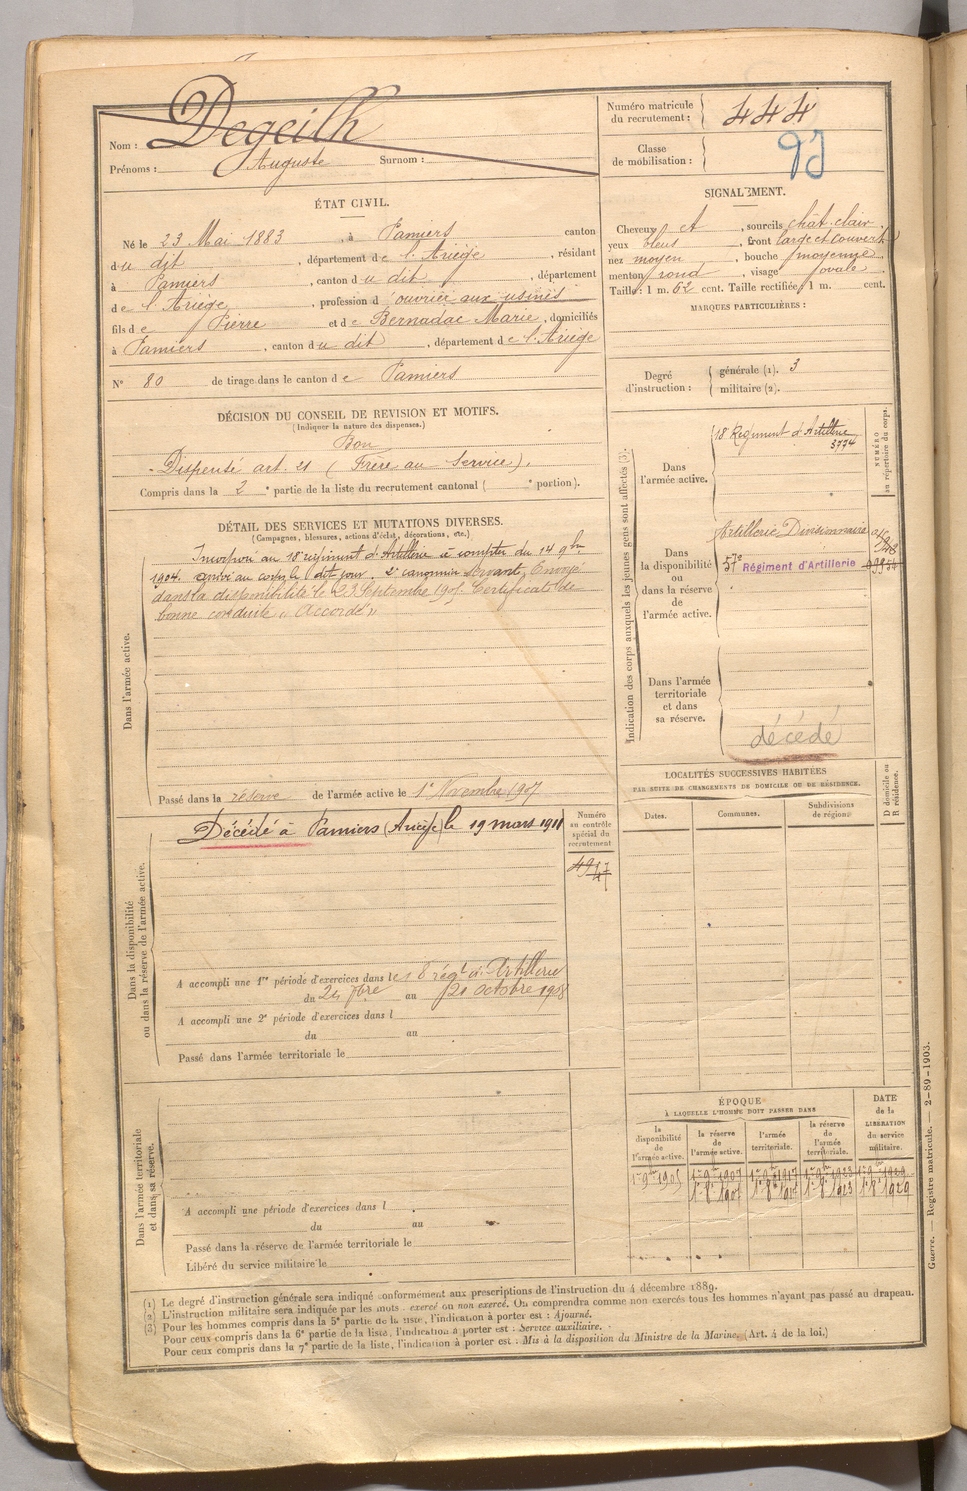 Nom : Degeilh
Prénoms : Auguste Surnom :
Numéro matricule
du recrutement : 444
Classe
de mobilisation :
ÉTAT CIVIL.
Né le 23 Mai 1883, à Pamiers canton
du dit, département de l'Ariège, résidant
à Pamiers, canton du dit, département
de l'Ariège, profession d ouvrier aux usines
fils de Pierre et de Bernadac Marie, domiciliés
à Pamiers, canton du dit, département de l'Ariège
N° 80 de tirage dans le canton de Pamiers
SIGNALEMENT.
Cheveux et, sourcils chât. clair.
yeux bleus, front large et couvert
nez moyen, bouche moyenne
menton rond, visage ovale.
Taille : 1 m. 62 cent. Taille rectifiée, 1 m. cent.
MARQUES PARTICULIÈRES :
Degré
d'instruction :
générale (1). 3
militaire (2).
DÉCISION DU CONSEIL DE REVISION ET MOTIFS.
(Indiquer la nature des dispenses.)
Bon
- Dispensé art. 21 (Frère au Service).
Compris dans la 2e partie de la liste du recrutement cantonal ( e portion).
DÉTAIL DES SERVICES ET MUTATIONS DIVERSES.
(Campagnes, blessures, actions d'éclat, décorations, etc.)
Dans l'armée active.
Incorporé au 18e régiment d'Artillerie à compter du 14 9bre
1904. arrivé au corps le dit jour, 2e canonnier servant, Envoyé
dans la disponibilité le 23 Septembre 1905. Certificat de
bonne conduite "Accordé"
Passé dans la réserve de l'armée active le 1er Novembre 1907
Indication des corps auxquels les jeunes gens sont affectés (3).
NUMÉRO
au répertoire du corps.
Dans
l'armée active.
18e Régiment d'Artillerie
3774
Dans
la disponibilité
ou
dans la réserve
de
l'armée active.
Artillerie Divisionnaire
57e Régiment d'Artillerie
Dans l'armée
territoriale
et dans
sa réserve.
décédé
Dans la disponibilité
ou dans la réserve de l'armée active.
Décédé à Pamiers (Ariège) le 19 mars 1911
Numéro
au contrôle
spécial du
recrutement
A accompli une 1re période d'exercices dans le 18 régt d'Artillerie
du 24 7bre au 21 octobre 1908
A accompli une 2e période d'exercices dans l
du au
Passé dans l'armée territoriale le
LOCALITÉS SUCCESSIVES HABITÉES
PAR SUITE DE CHANGEMENTS DE DOMICILE OU DE RÉSIDENCE.
Dates. Communes. Subdivisions
de régions
D domicile ou
R résidence.
Dans l'armée territoriale
et dans sa réserve.
A accompli une période d'exercices dans l
du au
Passé dans la réserve de l'armée territoriale le
Libéré du service militaire le
ÉPOQUE
À LAQUELLE L'HOMME DOIT PASSER DANS
la
disponibilité
de
l'armée active.
la réserve
de
l'armée active.
l'armée
territoriale.
la réserve
de
l'armée
territoriale.
DATE
de la
LIBÉRATION
du service
militaire.
1er 9bre 1905 1er 9bre 1907 1er 9bre 1917 1er 9bre 1923 1er 9bre 1929
1er 8bre 1907 1er 8bre 1917 1er 8bre 1923 1er 8bre 1929
(1) Le degré d'instruction générale sera indiqué conformément aux prescriptions de l'instruction du 4 décembre 1889.
(2) L'instruction militaire sera indiquée par les mots : exercé ou non exercé. On comprendra comme non exercés tous les hommes n'ayant pas passé au drapeau.
(3) Pour les hommes compris dans la 5e partie de la liste, l'indication à porter est : Ajourné.
Pour ceux compris dans la 6e partie de la liste, l'indication à porter est : Service auxiliaire.
Pour ceux compris dans la 7e partie de la liste, l'indication à porter est : Mis à la disposition du Ministre de la Marine. (Art. 4 de la loi.)
Guerre. — Registre matricule. — 2-89-1903.